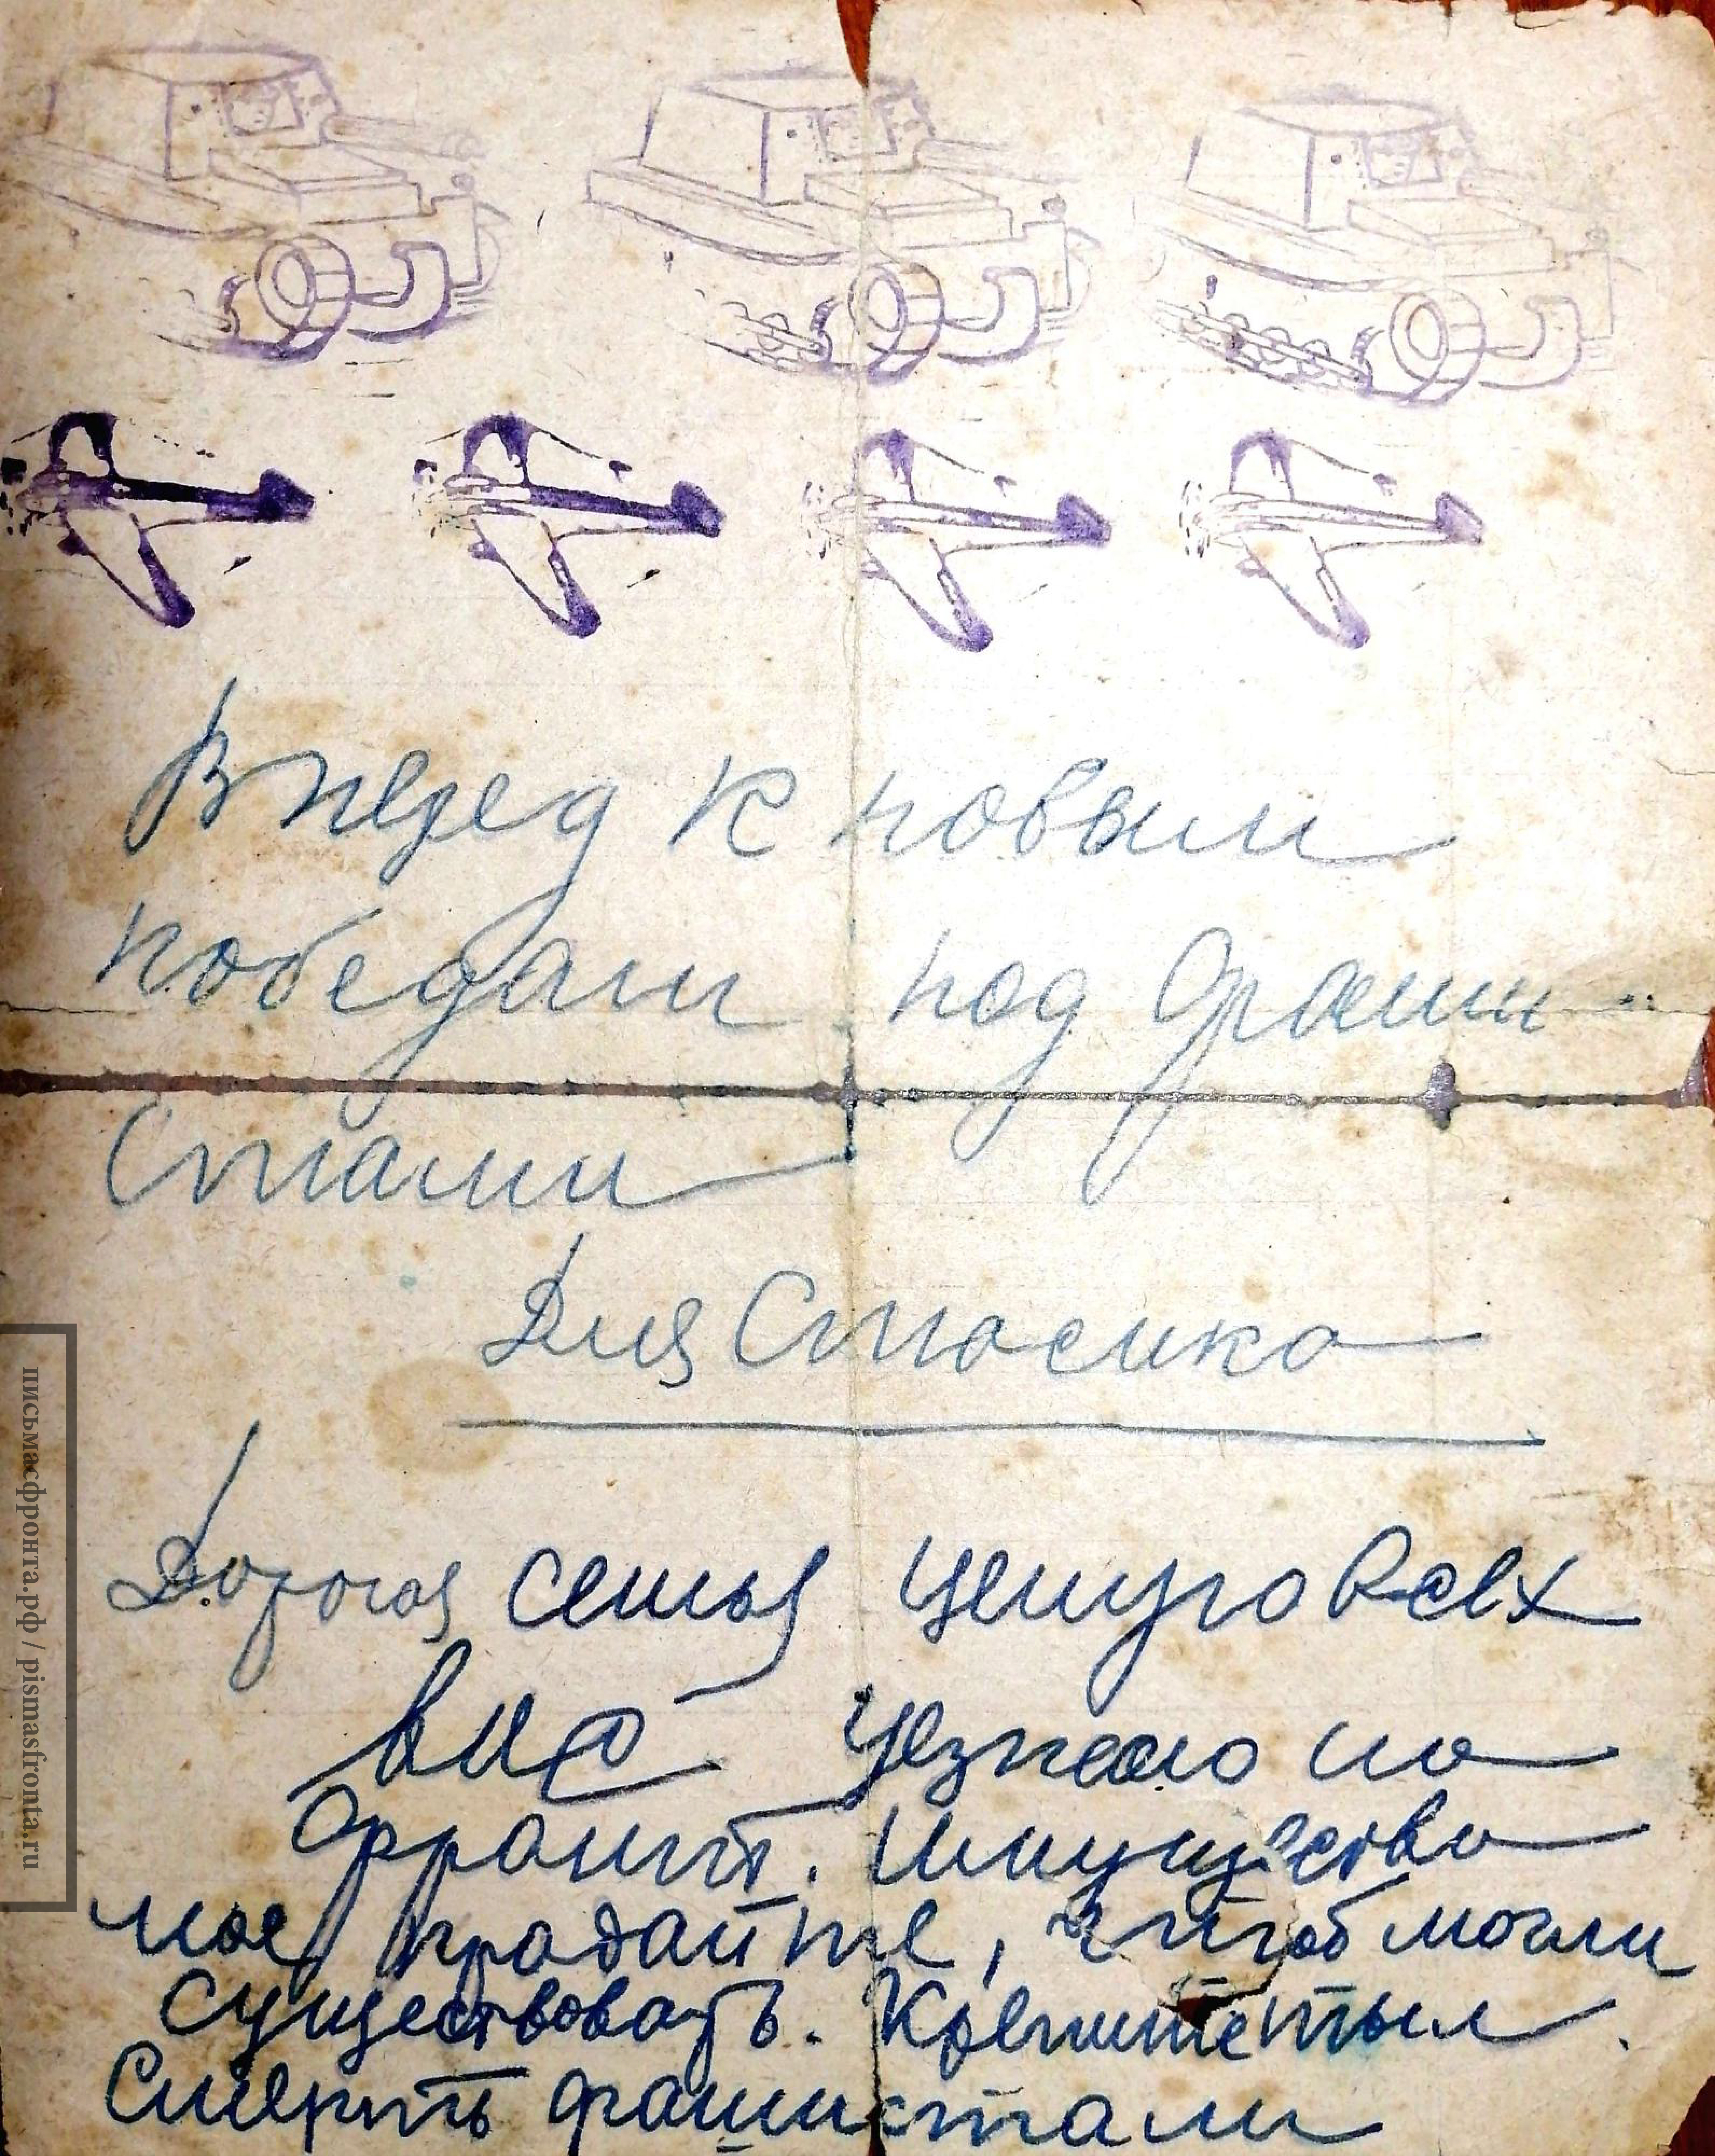 Вперед к новым
победам под фаши
стами
Для Стасика
Дорогая семья целую всех
вас Уезжаю на
фронт. Имущество
мое продайте, чтоб могли
существовать. Крепите тыл.
Смерть фашистам
письмасфронта.рф / pismasfronta.ru